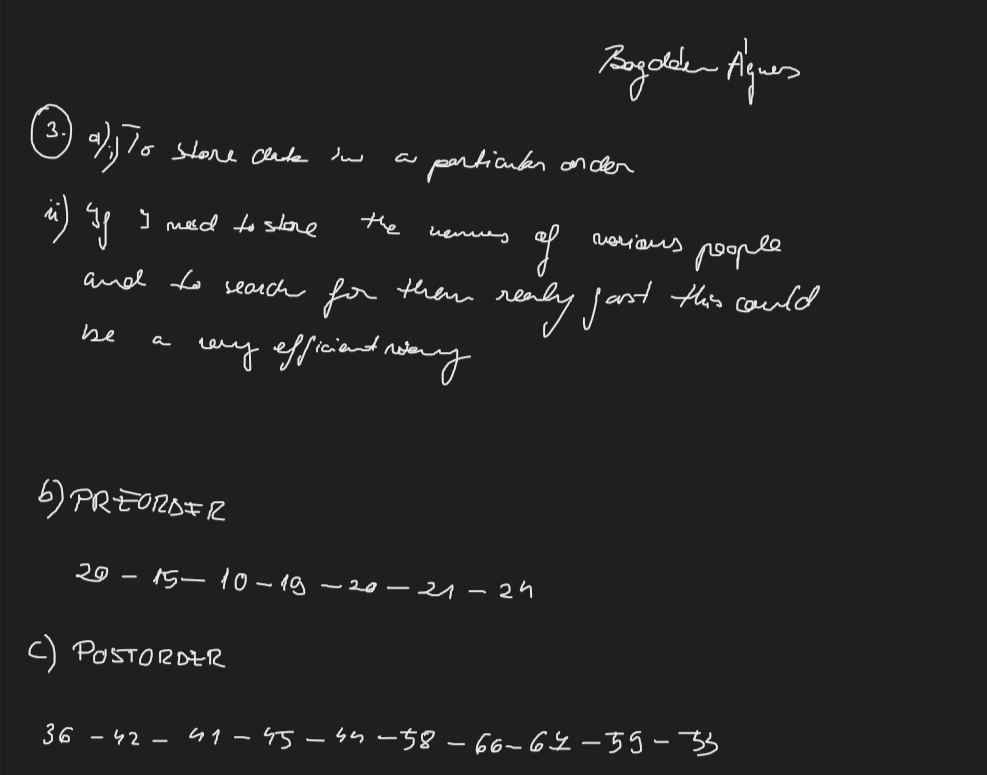 Bogdán Ágnes
3. a) i) To store data in a particular order
ii) If I need to store the names of various people
and to search for them really fast this could
be a very efficient way
b) PREORDER
20 - 15 - 10 - 19 - 20 - 21 - 24
c) POSTORDER
36 - 42 - 41 - 45 - 44 - 58 - 66 - 67 - 59 -